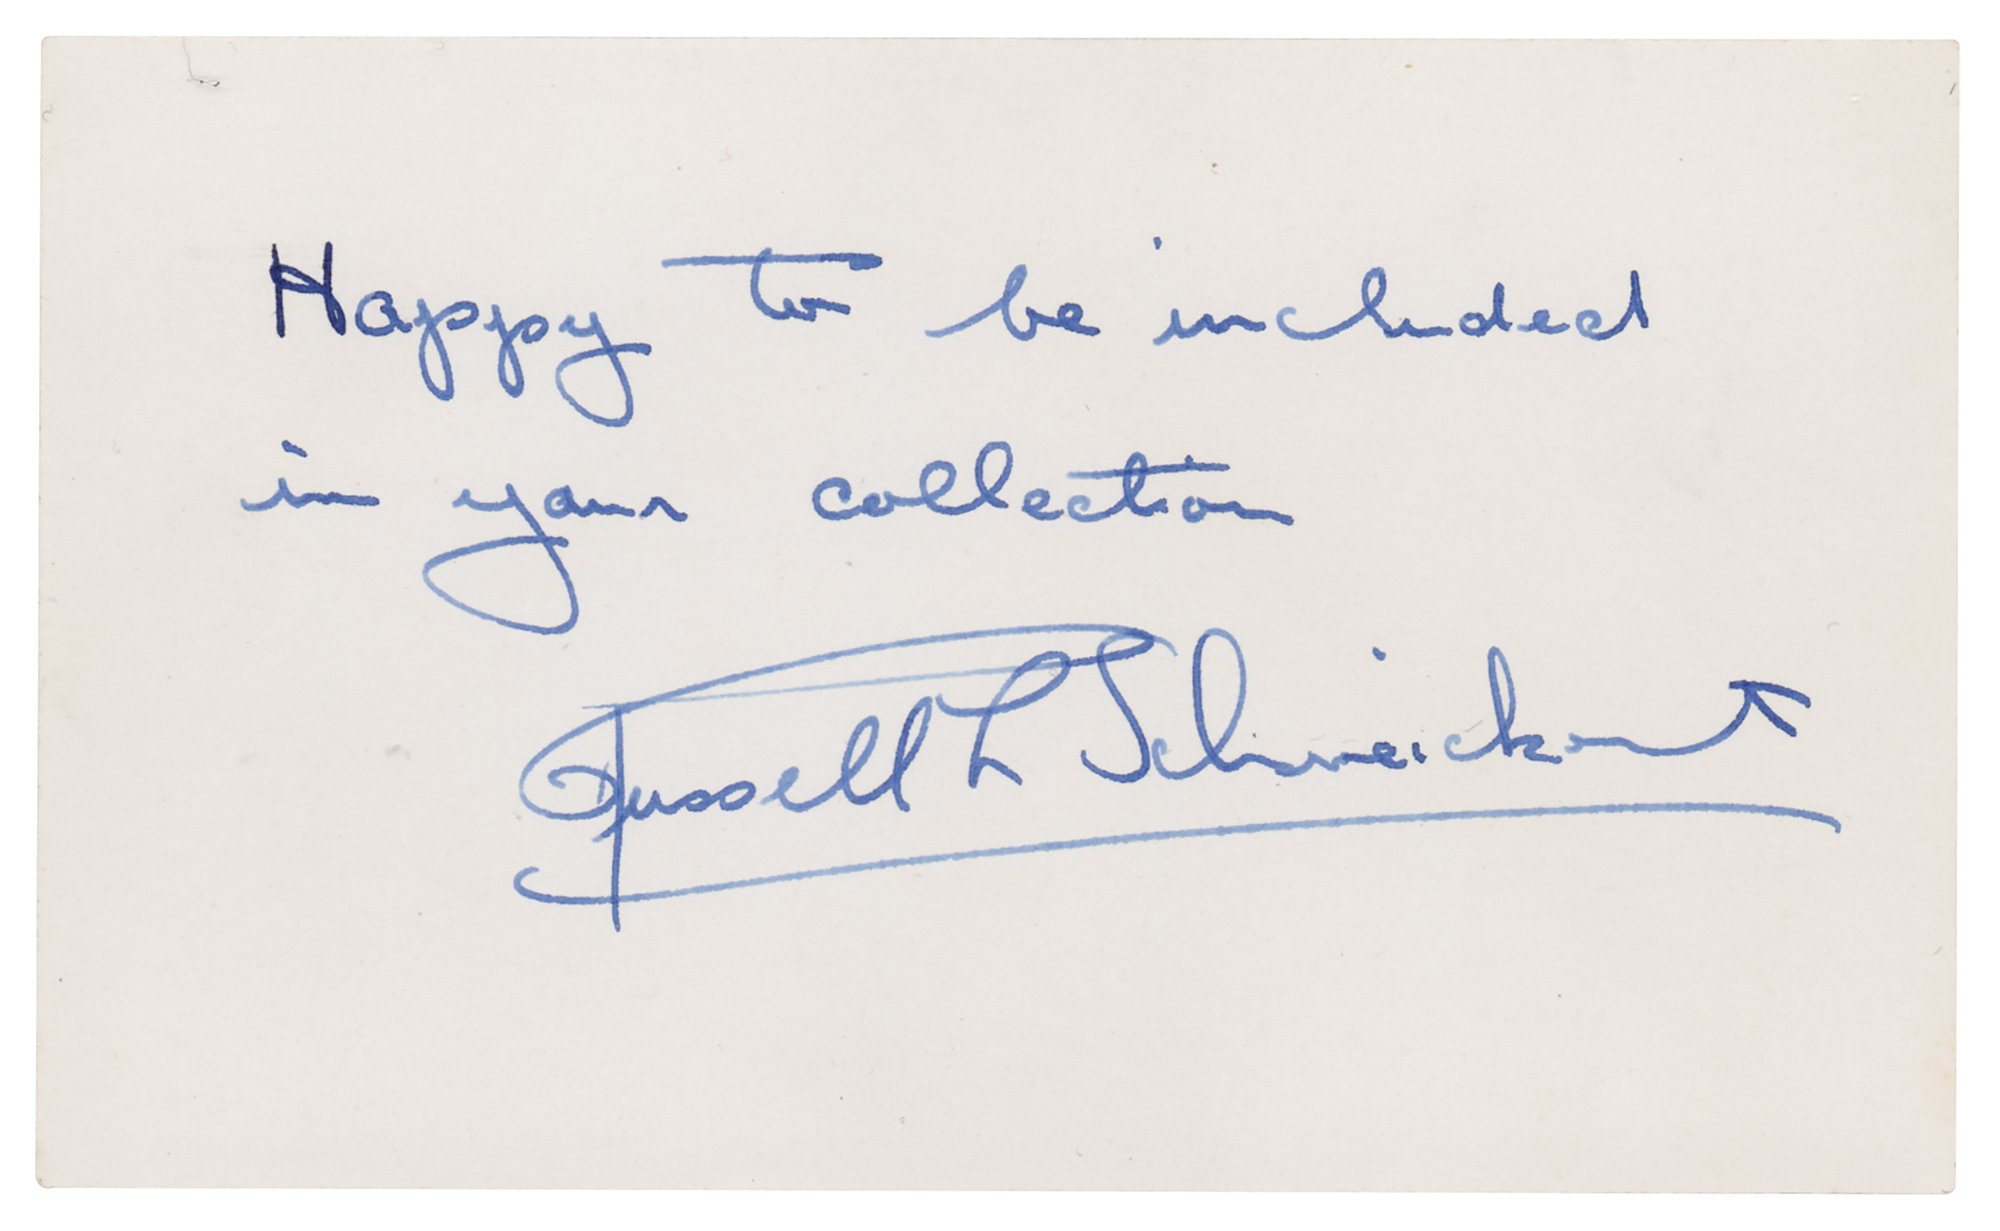 Happy to be included
in your collection
Russell L Schweickart